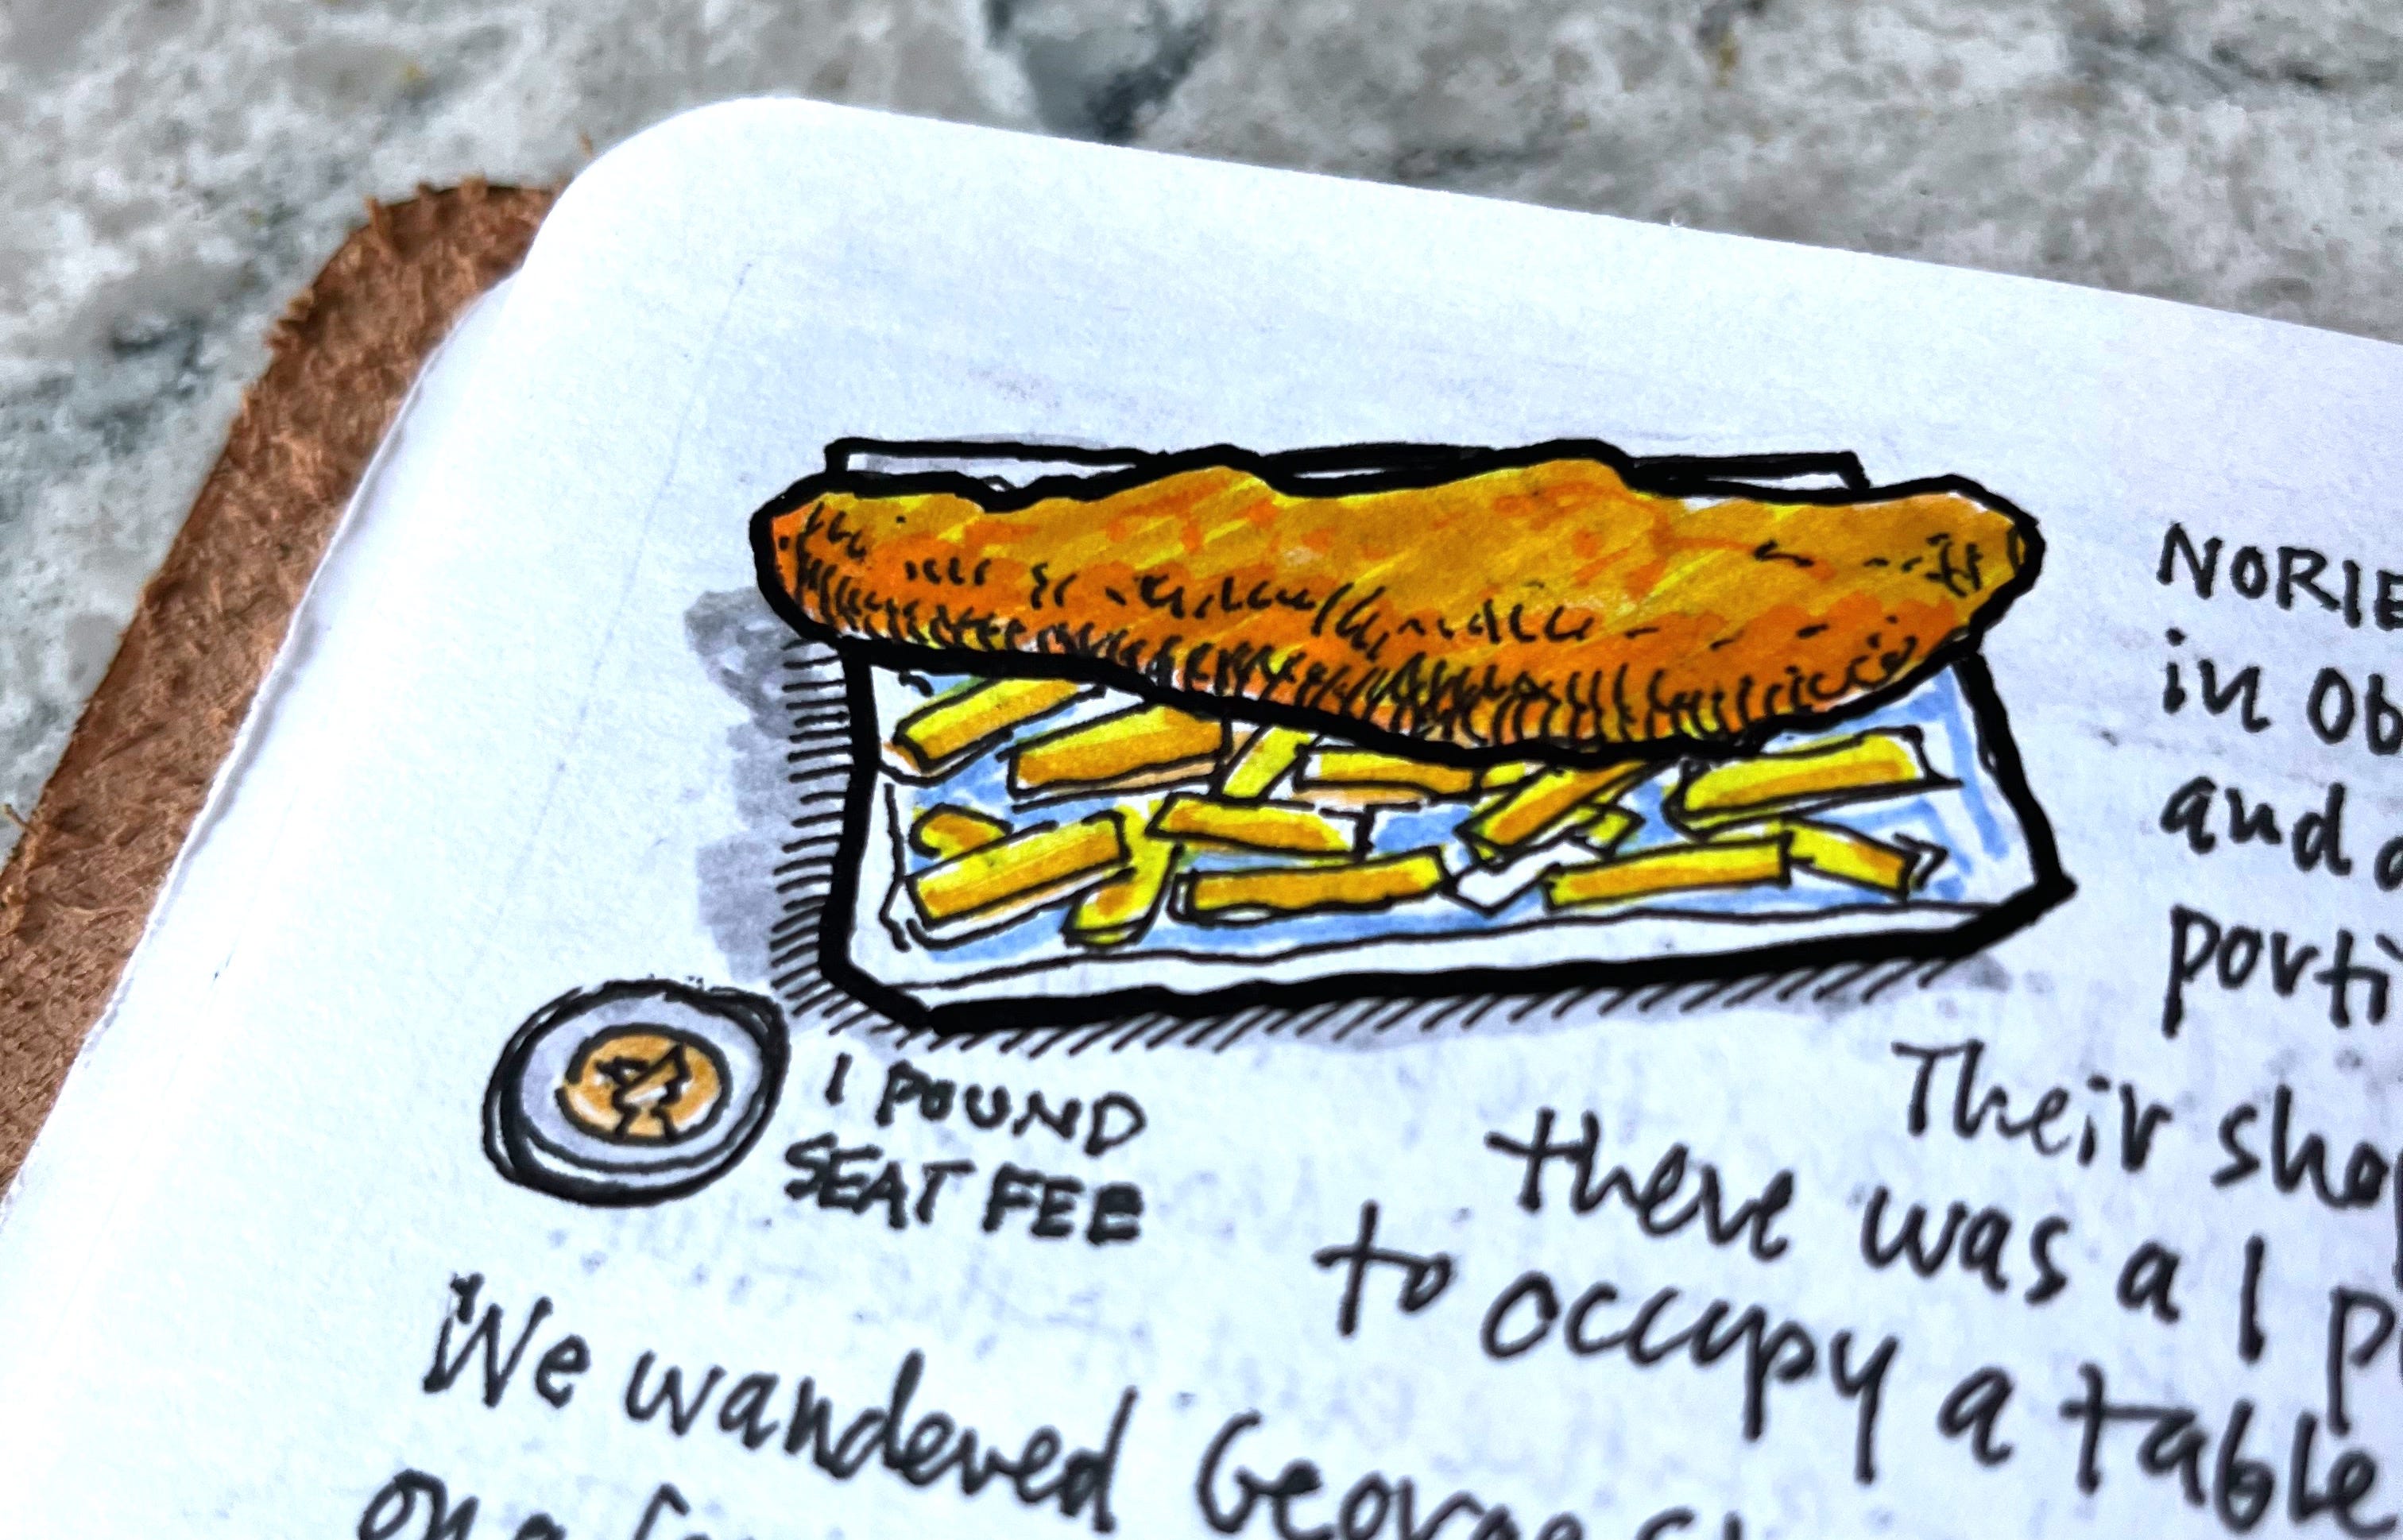 NORIE
in Ob
and a
porti
Their sho
there was a 1 p
to occupy a table
1 POUND
SEAT FEE
We wandered George St
on a